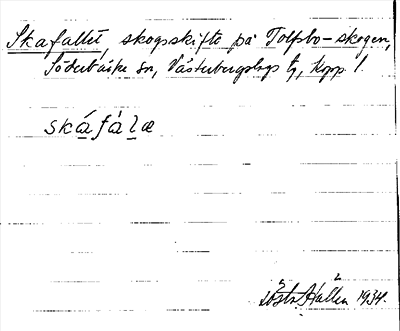 Skafallet, skogsskifte på Tolfsbo-skogen,
Söderbärke sn, Västerbergslags tg, Kopp. l.
skáfálæ
Gösta Hallén 1934.